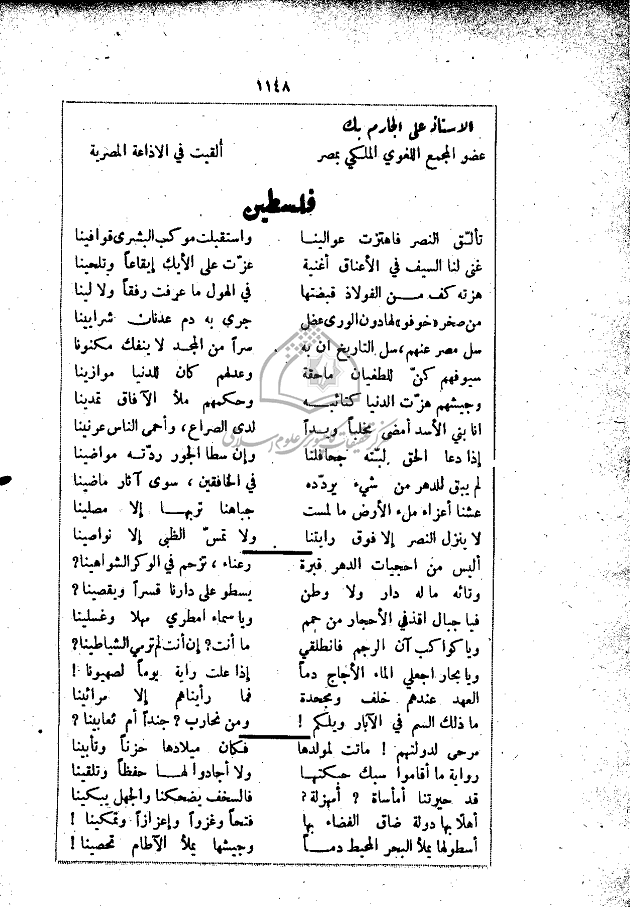 ١١٤٨
الاستاذ علي الجارم بك
عضو المجمع اللغوي الملكي بمصر ألقيت في الاذاعة المصرية
فلسطين
تألّق النصر فاهتزت عوالينا واستقبلت موكب البشرى قوافينا
غنى لنا السيف في الأعناق أغنية عزّت على الأيك إيقاعاً وتلحينا
هزته كف من الفولاذ قبضتها في الهول ما عرفت رفقاً ولا لينا
من صخر «خوفو» لها دون الورى عضل جرى به دم عدنان شرايينا
سل مصر عنهم، سل التاريخ ان به سراً من المجد لا ينفك مكنونا
سيوفهم كنّ للطغيان ماحقة وعدلهم كان للدنيا موازينا
وجيشهم هزّت الدنيا كتائبه وحكمهم ملأ الآفاق تمدينا
انا بني الأسد أمضى مخلباً ويداً لدى الصراع، وأحمى الناس عرنينا
إذا دعا الحق لبّته جحافلنا وإن سطا الجور ردّته مواضينا
لم يبق للدهر من شيء يردّده في الخافقين، سوى آثار ماضينا
عشنا أعزاء ملء الأرض ما لمست جباهنا تربها إلا مصلينا
لا ينزل النصر إلا فوق رايتنا ولا تمسّ الظبى إلا نواصينا
أليس من احجيات الدهر قبرة رعناء، تزحم في الوكر الشواهينا؟
وتائه ما له دار ولا وطن يسطو على دارنا قسراً ويقصينا؟
فيا جبال اقذفي الأحجار من حمم ويا سماء امطري مهلا وغسلينا
ويا كواكب آن الرجم فانطلقي ما أنت؟ إن أنت لم ترمي الشياطينا؟
ويا بحار اجعلي الماء الأجاج دماً إذا علت راية يوماً لصهيونا!
العهد عندهم خلف ومجحدة فما رأيناهم إلا مرائينا
ما ذلك السم في الآبار ويلكم! ومن نحارب؟ جنداً أم ثعابينا؟
مرحى لدولتهم! ماتت لمولدها فكان ميلادها حزناً وتأبينا
رواية ما أقاموا سبك حبكتها ولا أجادوا لها حفظاً وتلقينا
قد حيرتنا أمأساة؟ أمهزلة؟ فالسخف يضحكنا والجهل يبكينا
أهلا بها دولة ضاق الفضاء بها فتحاً وغزواً وإعزازاً وتمكينا!
أسطولها يملأ البحر المحيط دماً وجيشها يملأ الآطام تحصينا!